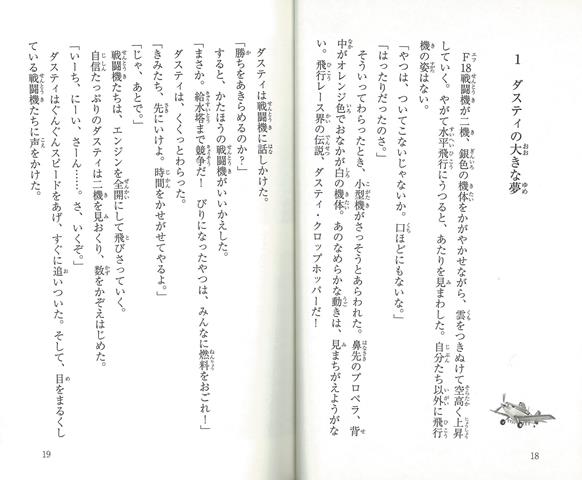 1 ダスティの大きな夢
F18戦闘機が二機、銀色の機体をかがやかせながら、雲をつきぬけて空高く上昇
していく。やがて水平飛行にうつると、あたりを見まわした。自分たち以外に飛行
機の姿はない。
「やつは、ついてこないじゃないか。口ほどにもないな。」
「はったりだったのさ。」
そういってわらったとき、小型機がさっそうとあらわれた。鼻先のプロペラ、背
中がオレンジ色でおなかが白の機体。あのなめらかな動きは、見まちがえようがな
い。飛行レース界の伝説、ダスティ・クロップホッパーだ！
18
ダスティは戦闘機に話しかけた。
「勝ちをあきらめるのか？」
すると、かたほうの戦闘機がいいかえした。
「まさか。給水塔まで競争だ！　びりになったやつは、みんなに燃料をおごれ！」
ダスティは、くくっとわらった。
「きみたち、先にいけよ。時間をかせがせてやるよ。」
「じゃ、あとで。」
戦闘機たちは、エンジンを全開にして飛びさっていく。
自信たっぷりのダスティは二機を見おくり、数をかぞえはじめた。
「いーち、にーい、さーん……。さ、いくぞ。」
ダスティはぐんぐんスピードをあげ、すぐに追いついた。そして、目をまるくし
ている戦闘機たちに声をかけた。
19